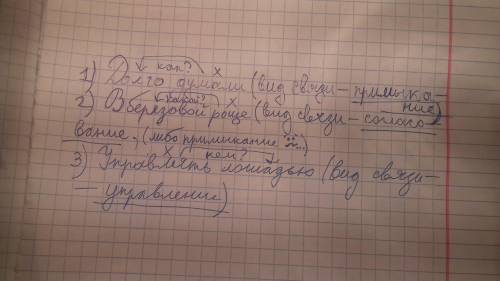 как? х
1) Долго думали (вид связи – примыка-
ние)
какой? х
2) В берёзовой роще (вид связи – согласо-
вание. (либо примыкание ...)
х чем?
3) Управлять лошадью (вид связи –
– управление)